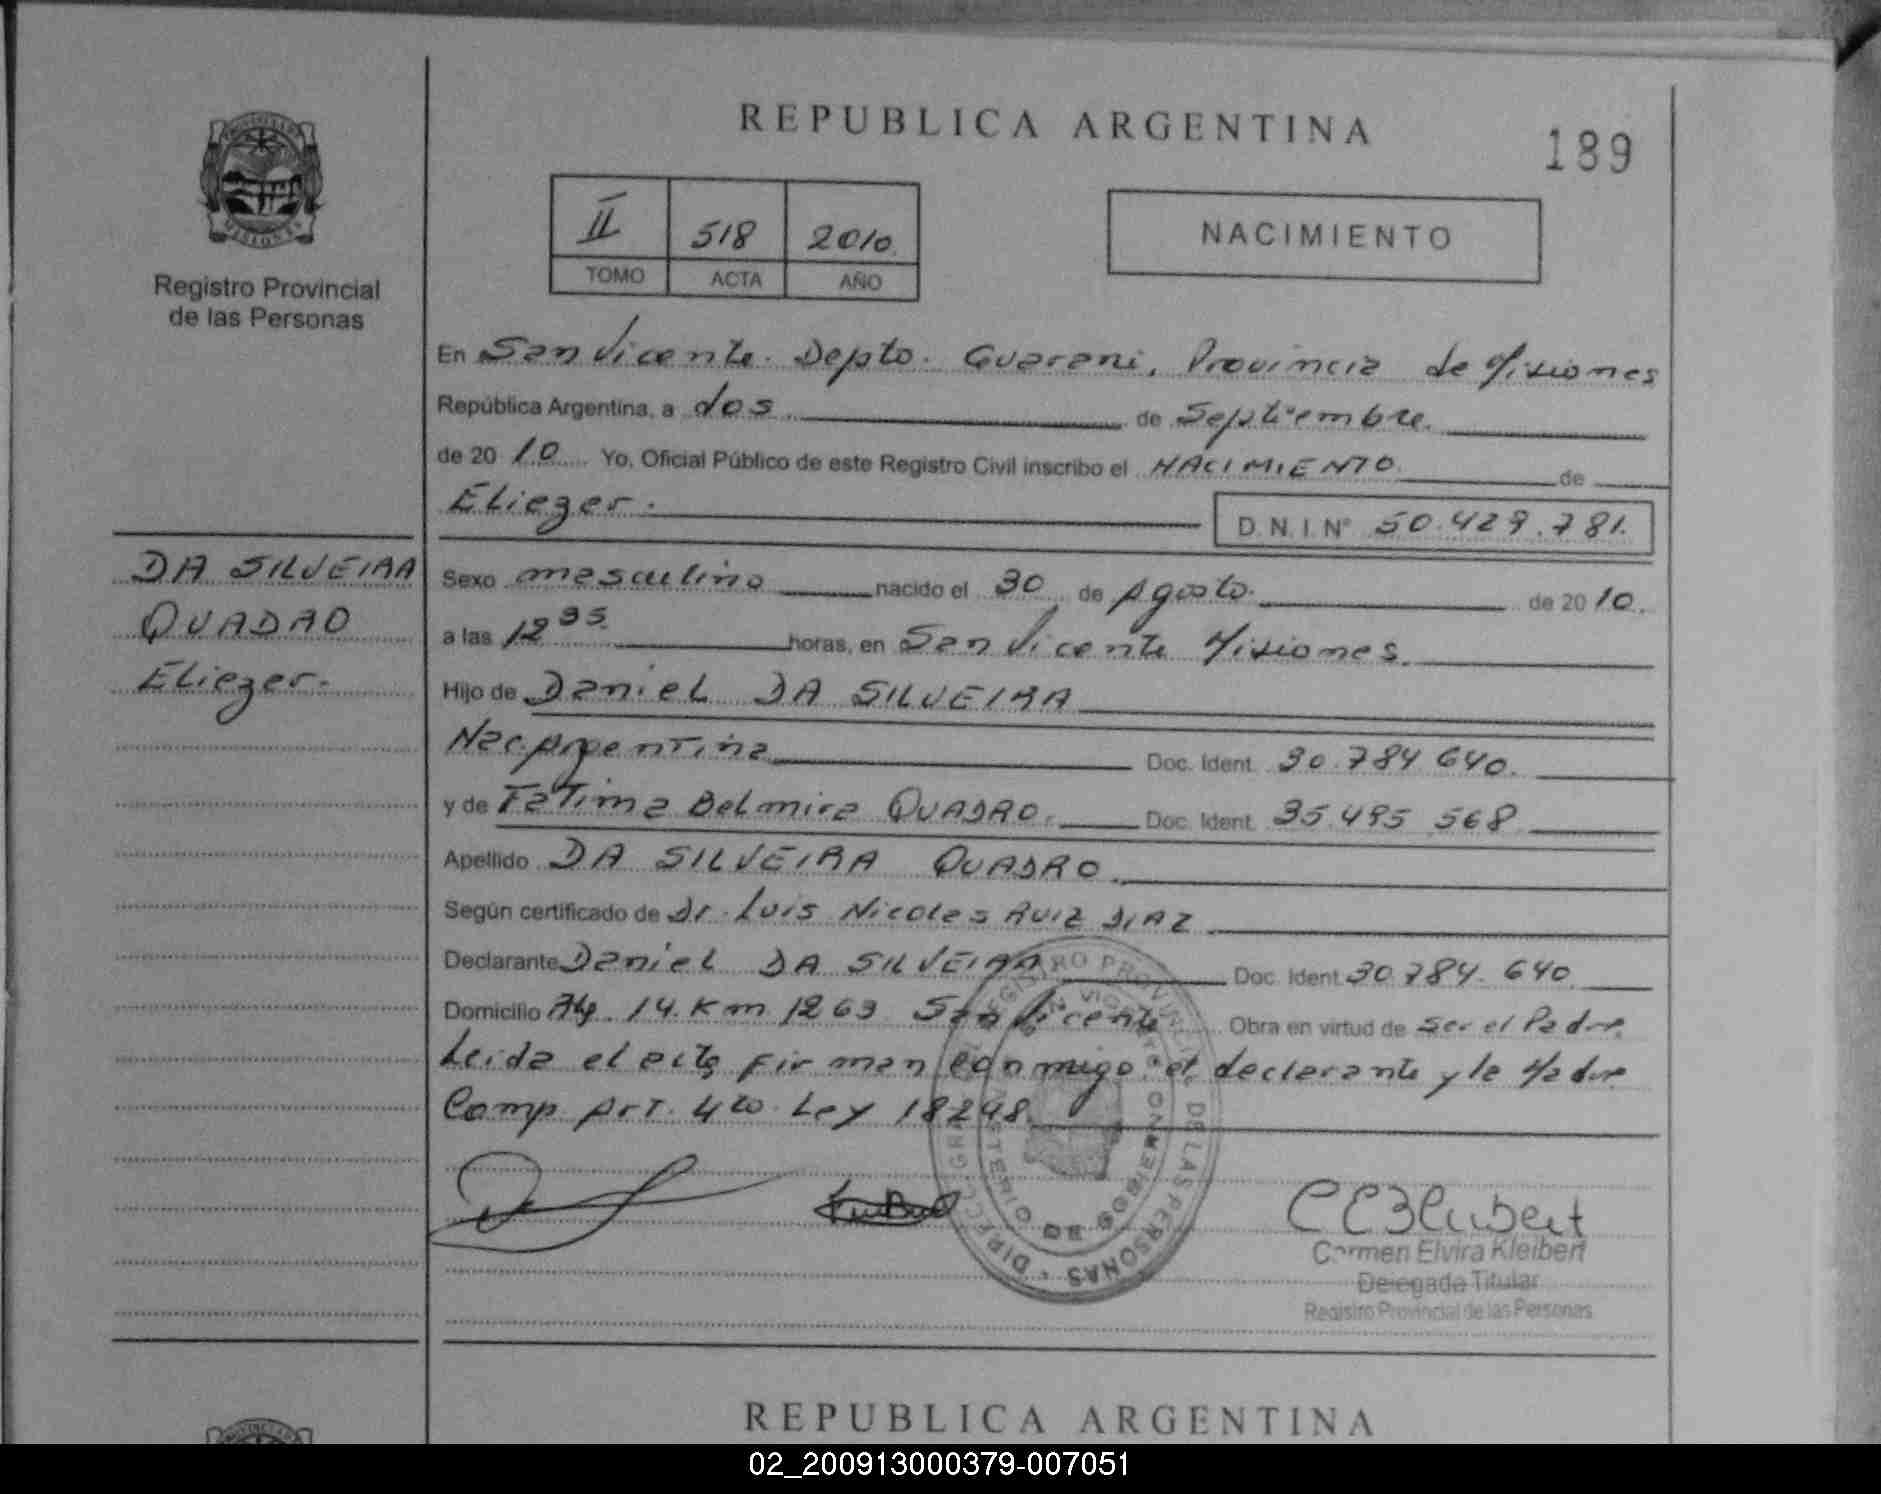 REPUBLICA ARGENTINA
189
PROVINCIA DE
MISIONES
Registro Provincial
de las Personas
II 518 2010.
TOMO ACTA AÑO
NACIMIENTO
En San Vicente. Depto. Guarani, Provincia de Misiones
República Argentina, a dos de Septiembre.
de 20 10 Yo, Oficial Público de este Registro Civil inscribo el NACIMIENTO. de
Eliezer. D.N.I. Nº 50.429.781.
DA SILVEIRA
QUADRO
Eliezer.
Sexo masculino nacido el 30 de Agosto. de 20 10.
a las 12 35. horas, en San Vicente Misiones.
Hijo de Daniel DA SILVEIRA
Nac. Argentina Doc. Ident. 30.784 640.
y de Fatima Belmira QUADRO. Doc. Ident. 35.495 568
Apellido DA SILVEIRA QUADRO.
Según certificado de Dr. Luis Nicolas RUIZ DIAZ
Declarante Daniel DA SILVEIRA Doc. Ident. 30.784.640.
Domicilio 14. Km 1263 San Vicente Obra en virtud de Ser el Padre.
Leida el acta firman conmigo el declarante y la Madre
Comp. Art. 4to. Ley 18248.
REGISTRO PROVINCIAL DE LAS PERSONAS
Carmen Elvira Kleibert
Delegada Titular
Registro Provincial de las Personas
REPUBLICA ARGENTINA
02_200913000379-007051